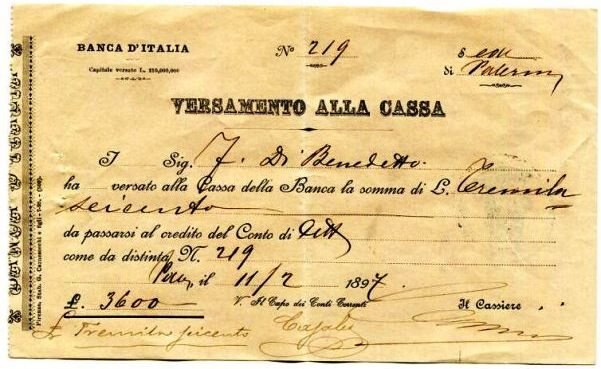 BANCA D'ITALIA
Nº 219
Sede
Capitale versato L.
di Palermo
VERSAMENTO ALLA CASSA
I Sig. F. Di Benedetto
ha versato alla Cassa della Banca la somma di L. Tremila
seicento
da passarsi al credito del Conto di
come da distinta N. 219
il 11/2 1897
£. 3600
V. Il Capo dei Conti Correnti
Il Cassiere
Tremila seicento
Firenze, Stab. G. Carnesecchi e figli